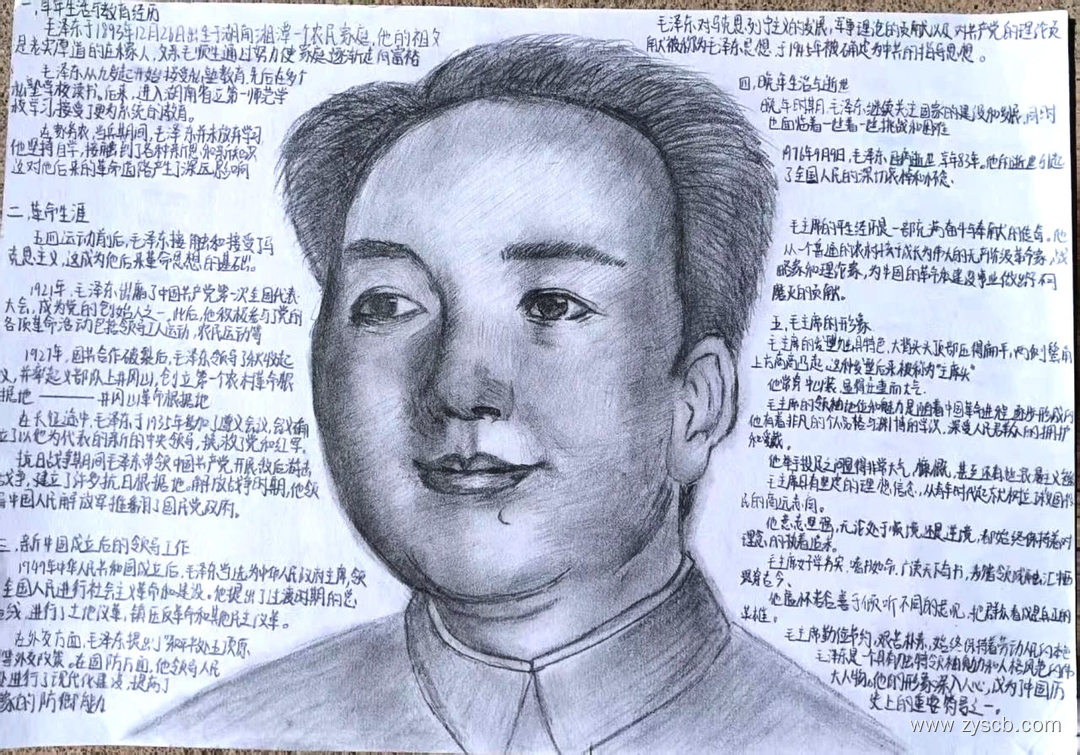 一、早年生活与教育经历
毛泽东于1893年12月26日出生于湖南湘潭一个农民家庭，他的祖父
是老实厚道的庄稼人，父亲毛顺生通过努力使家庭逐渐走向富裕
毛泽东从九岁开始接受私塾教育，先后在多个
私塾学校读书，后来，进入湖南省立第一师范学
校学习接受了更为系统的教育。
在务农、当兵期间，毛泽东并未放弃学习
他坚持自学，接触到了各种新思想和新知识
这对他后来的革命道路产生了深远影响
二、革命生涯
五四运动前后，毛泽东接触和接受了马
克思主义，这成为他后来革命思想的基础。
1921年，毛泽东出席了中国共产党第一次全国代表
大会，成为党的创始人之一，此后，他积极参与了党的
各项革命活动包括领导工人运动，农民运动等
1927年，国共合作破裂后，毛泽东领导了秋收起
义，并率起义部队上井冈山，创立第一个农村革命根
据地————井冈山革命根据地
在长征途中，毛泽东于1935年参加了遵义会议，会议确
立了以他为代表的新的中央领导，挽救了党和红军。
抗日战争期间毛泽东带领中国共产党，开展敌后游击
战争，建立了许多抗日根据地。解放战争时期，他领
导中国人民解放军推翻了国民党政府。
三、新中国成立后的领导工作
1949年中华人民共和国成立后，毛泽东当选为中华人民政府主席，领
全国人民进行社会主义革命和建设。他提出了过渡时期的总
路线，进行了土地改革，镇压反革命和其他民主改革。
在外交方面，毛泽东提出了和平共处五项原
等外交政策。在国防方面，他领导人民
进行了现代化建设，提高了
家的防御能力
毛泽东对马克思列宁主义的发展，军事理论的贡献以及对共产党的理论贡
献被称为毛泽东思想，于1945年被确定为中共的指导思想。
四、晚年生活与逝世
晚年时期，毛泽东继续关注国家的建设和发展，同时
也面临着一些着一些挑战和困难
1976年9月9日，毛泽东因病逝世，享年83年。他的逝世引起
了全国人民的深切哀悼和怀念、
毛主席的平生经历是一部充满奋斗与奉献的传奇。他
从一个普通的农村孩子成长为伟大的无产阶级革命家，战
略家和理论家，为中国的革命和建设事业做出了不可
磨灭的贡献。
五、毛主席的形象
毛主席的发型为具特色，大背头头顶部压得扁平，两侧鬓角
上方高高凸起，这种发型后来被称为“主席头”
他常穿中山装，显得庄重而大气。
毛主席的领袖地位和能力是随着中国革命进程逐步形成的
他有着非凡的人品格与渊博的学识，深受人民群众的拥护
和爱戴。
他举手投足之间显得非常大气、慷慨，甚至还有些浪漫主义
毛主席具有坚定的理想信念，从青年时代起
民的高远志向。
他意志坚强，无论处于顺境还是逆境，都始终保持着对
理想的执着追求。
毛主席好学务实，嗜书如命，广读天下书，
他虚怀若谷善于倾听不同的意见，把群众看成是真正的
英雄。
毛主席勤俭节约，艰苦朴素，始终保持着劳动人民的本色
毛泽东是一个具有出特领袖魅力和人格风范的伟
大人物。他的形象深入人心，成为了中国历
史上的重要符号之一。
www.zyscb.com